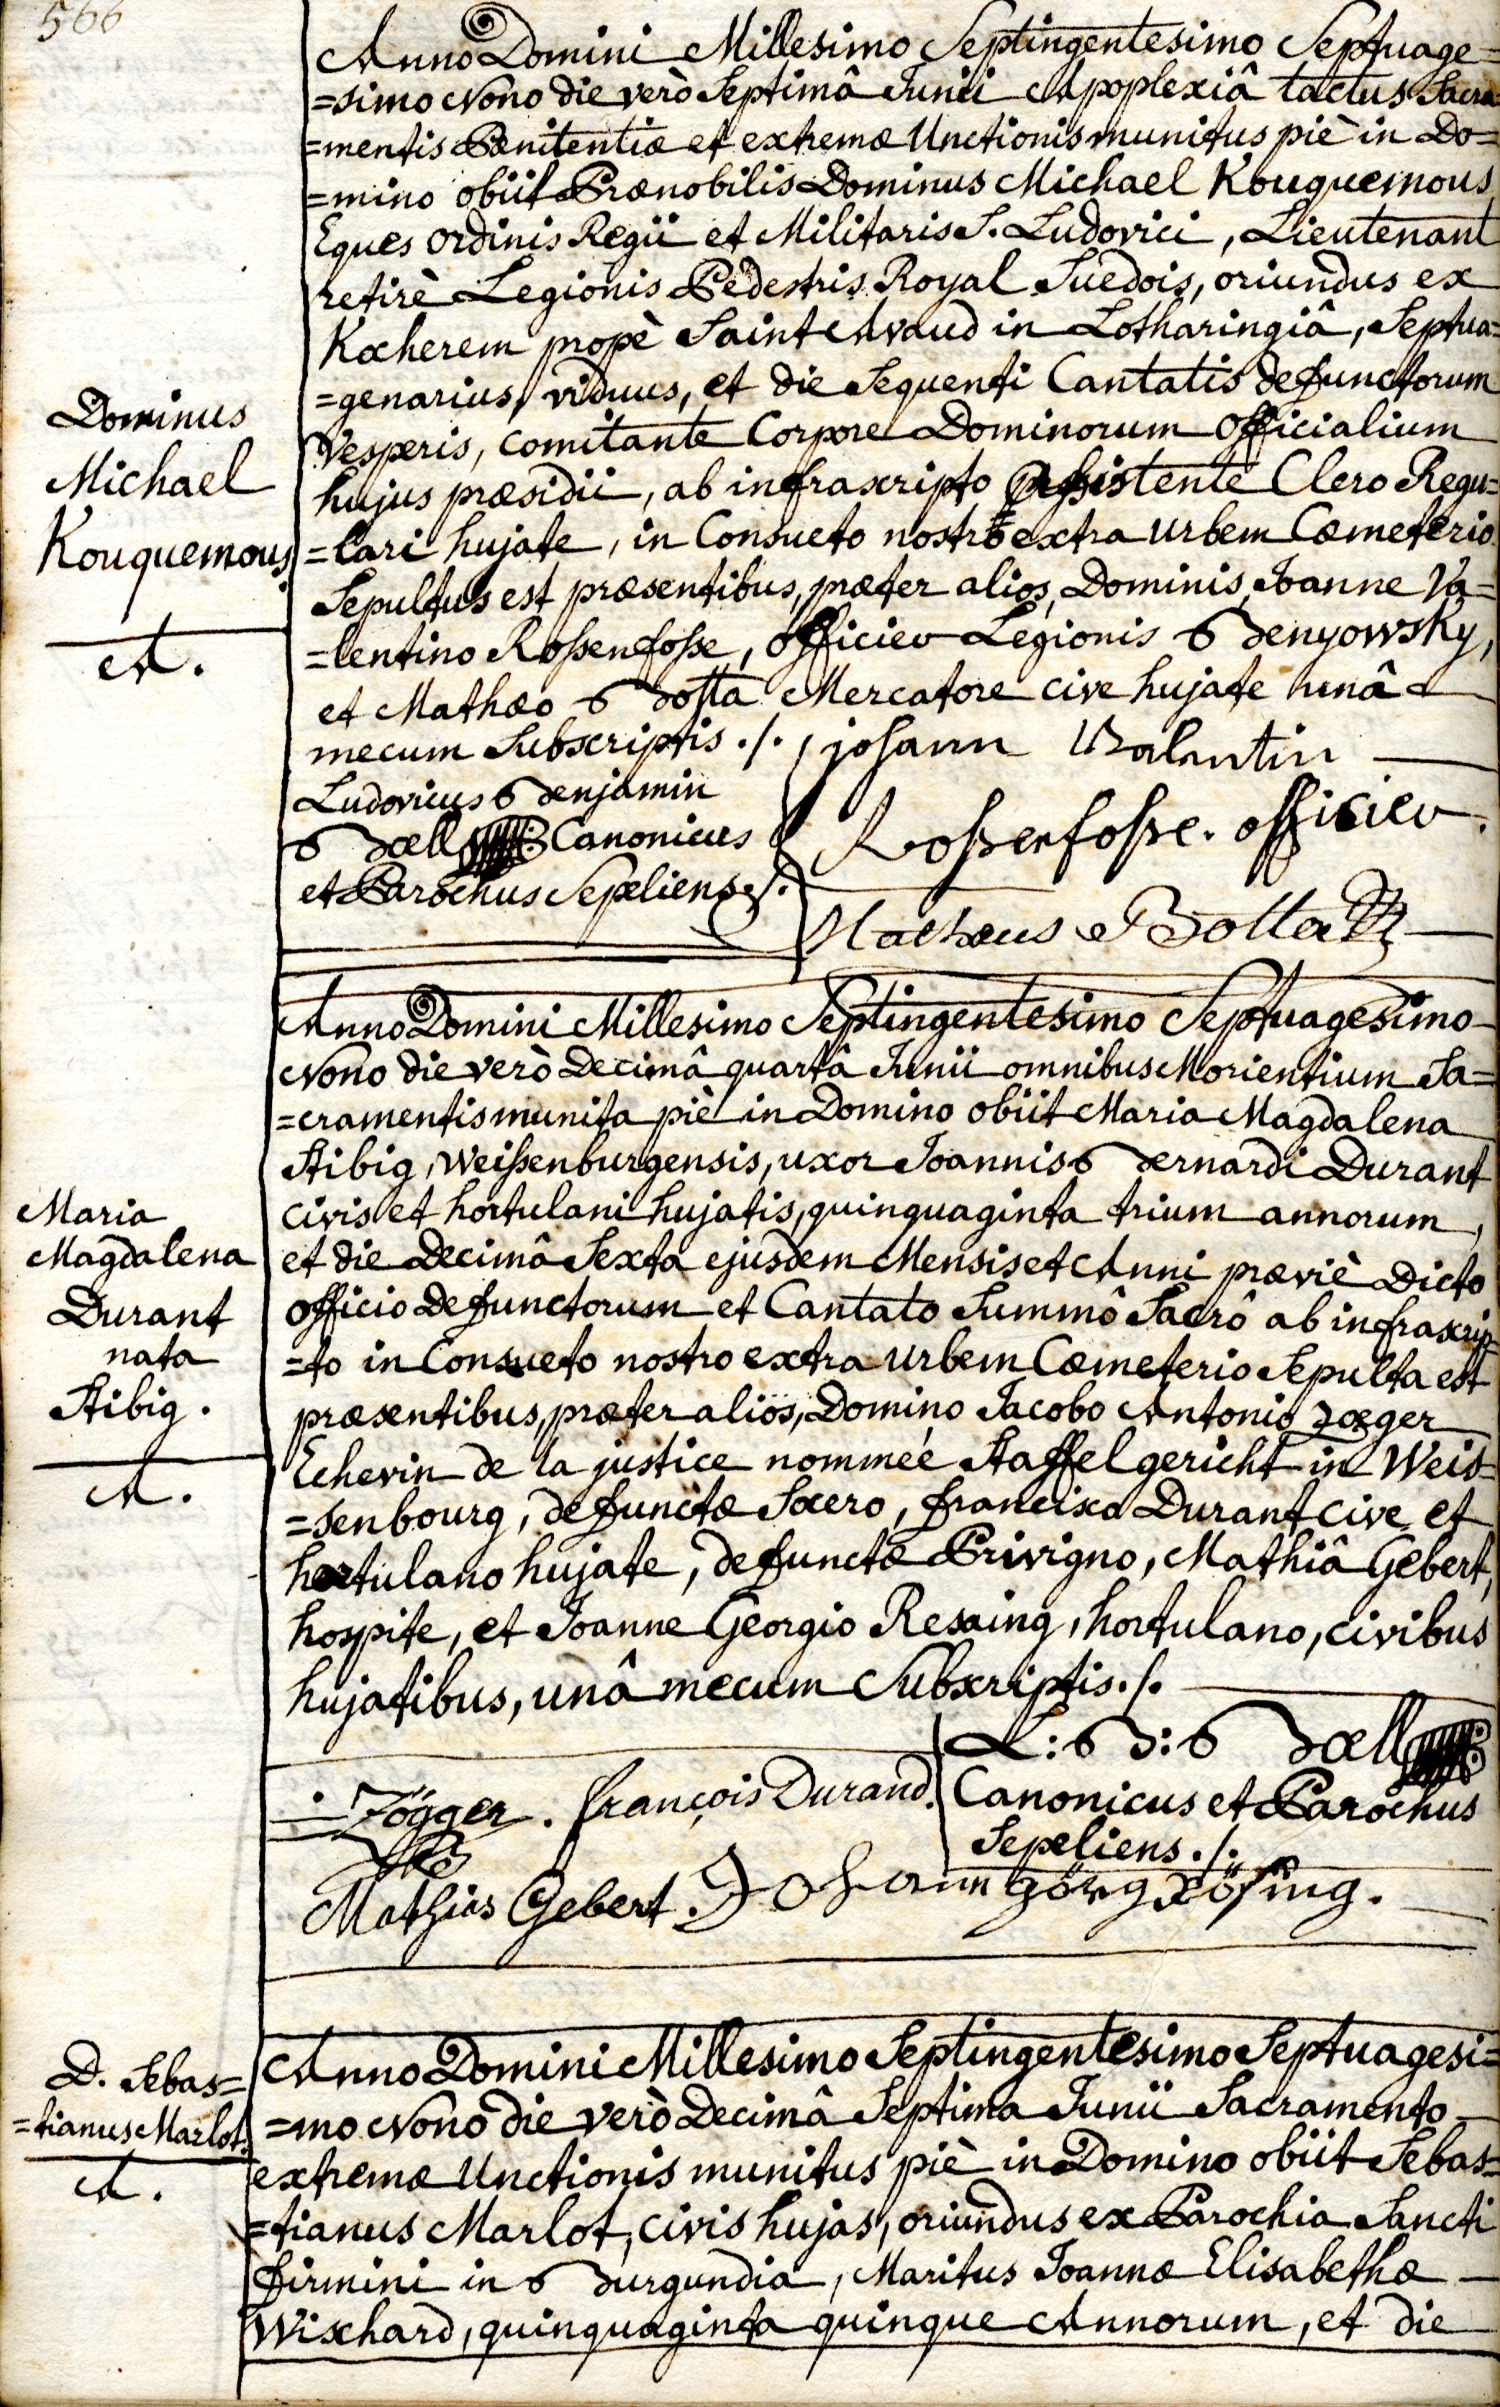 566
Anno Domini Millesimo Septingentesimo Septuage=
=simo Nono die verò Septimâ Junii Apoplexiâ tactus Sacra
=mentis Pœnitentiæ et extremæ Unctionis munitus piè in Do=
=mino obiit Prænobilis Dominus Michael Kouquemous
Eques ordinis Regii et Militaris S. Ludovici, Lieutenant
retirè Legionis Pedestris Royal Suedois, oriundus ex
Kocherem propè Saint Avaud in Lotharingiâ, Septua=
=genarius, viduus, et die Sequenti Cantatis defunctorum
Vesperis, comitante Corpore Dominorum Officialium
hujus præsidii, ab infrascripto Assistente Clero Regu=
=lari hujate, in Consueto nostro extra urbem Cœmeterio
Sepultus est præsentibus, præter alios, Dominis, Joanne Va=
=lentino Rossenfosse, officier Legionis Benyowsky,
et Mathæo Botta Mercatore cive hujate unâ
mecum Subscriptis ./.
Dominus
Michael
Kouquemous.
A.
Ludovicus Benjamin
Bœll Canonicus
et Parochus Sepeliens./.
johann Valentin
Rossenfosse. officier.
Mathæus Botta
Anno Domini Millesimo Septingentesimo Septuagesimo
Nono die verò Decimâ quartâ Junii omnibus Morientium Sa=
=cramentis munita piè in Domino obiit Maria Magdalena
Stibig, Weissenburgensis, uxor Joannis Bernardi Durant
civis et hortulani hujatis, quinquaginta trium annorum,
et die Decimâ Sexta ejusdem Mensis et Anni præviè Dicto
officio Defunctorum et Cantato Summô Sacrô ab infrascrip=
=to in Consueto nostro extra urbem Cœmeterio Sepulta est
præsentibus, præter alios, Domino Jacobo Antonio Zœger
Echevin de la justice nommée Staffelgericht in Weis=
=senbourg, defunctæ Socero, francisco Durant cive et
hortulano hujate, defunctæ Privigno, Mathiâ Gebert,
hospite, et Joanne Georgio Resaing, hortulano, civibus
hujatibus, unâ mecum Subscriptis./.
Maria
Magdalena
Durant
nata
Stibig.
A.
L: B: Bœll
Canonicus et Parochus
Sepeliens./.
Zögger. françois Durand.
Mathias Gebert. Johann görg Rösing.
Anno Domini Millesimo Septingentesimo Septuagesi=
=mo Nono die verò Decimâ Septima Junii Sacramento
extremæ Unctionis munitus piè in Domino obiit Sebas=
=tianus Marlot, civis hujas, oriundus ex Parochia Sancti
firmini in Burgundia, Maritus Joannæ Elisabethæ
Wischard, quinquaginta quinque Annorum, et die
D. Sebas=
=tianus Marlot.
A.